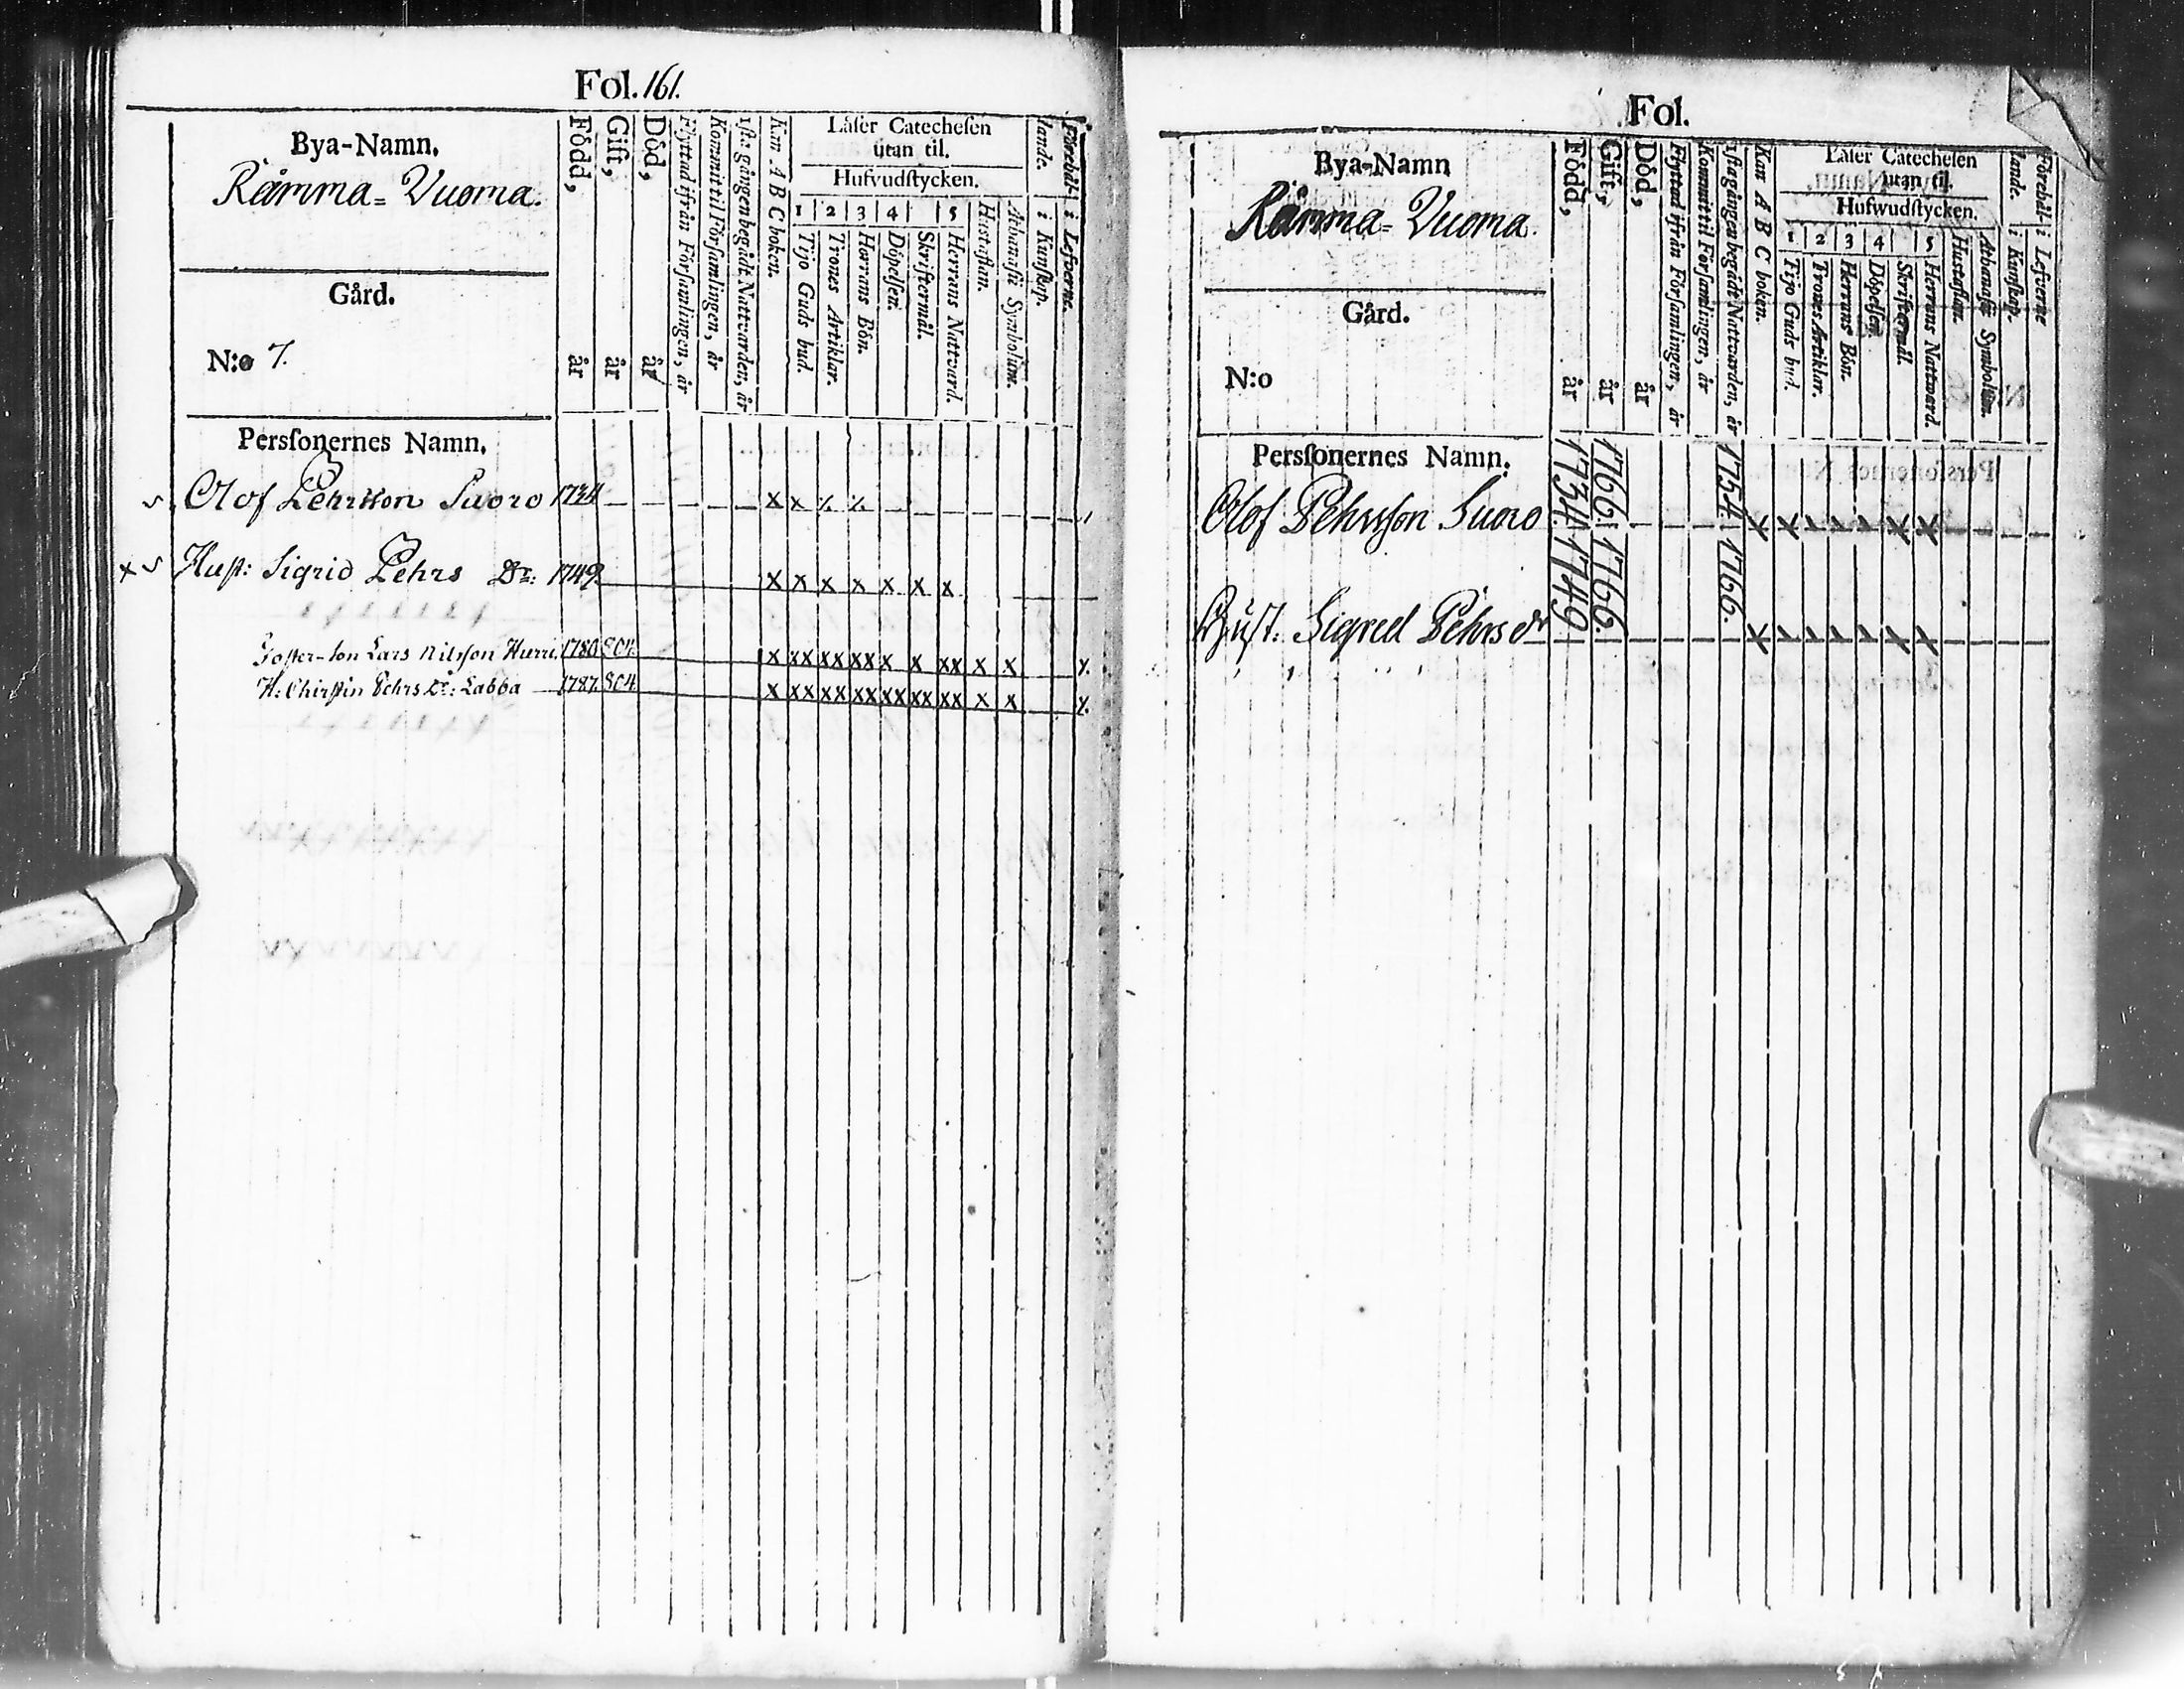 Fol. 161.
Bya-Namn.
Råmma= Vuoma.
Gård.
N:o 7.
Persſonernes Namn.
Född, år
Gift, år
Död, år
Flyttad ifrån Förſamlingen, år
Kommit til Förſamlingen, år
1ſta gången begådt Nattvarden, år
Kan A B C boken.
Läſer Catecheſen
utan til.
Hufvudſtycken.
1 2 3 4 5
Tijo Guds bud.
Trones Artiklar.
Herrans Bön.
Döpelſen.
Skriftermål.
Herrans Nattvard.
Hustaflan.
Athanaſii Symbolum.
Förehål-
lande.
i Kunſkap.
i Lefverne.
Olof Pehrsson Suoro 1734 x x ⁒ ⁒
x Huſt: Sigrid Pehrs Dr: 1749. x x x x x x x
Foster-son Lars Nilsſon Hurri. 1780. 804. x xx xx xx x x xx x x
H: Chirſtin Pehrs Dr: Labba 1787. 804. x xx xx xx xx xx xx x x
Fol.
Bya-Namn
Råmma= Vuoma.
Gård.
N:o
Persſonernes Namn.
Född, år
Gift, år
Död, år
Flyttad ifrån Förſamlingen, år
Kommit til Förſamlingen, år
1ſta gången begådt Nattvarden, år
Kan A B C boken.
Läſer Catecheſen
utan til.
Hufwudſtycken.
1 2 3 4 5
Tijo Guds bud.
Trones Artiklar.
Herrans Bön.
Döpelſen.
Skriftermål.
Herrans Nattvard.
Hustaflan.
Athanaſii Symbolum.
Förehål-
lande.
i Kunſkap.
i Lefverne
Olof Pehrsſon Suoro 1734. 1766. 1754. x x x x
Huſt: Sigred Pehrs dr 1749 1766. 1766. x x x